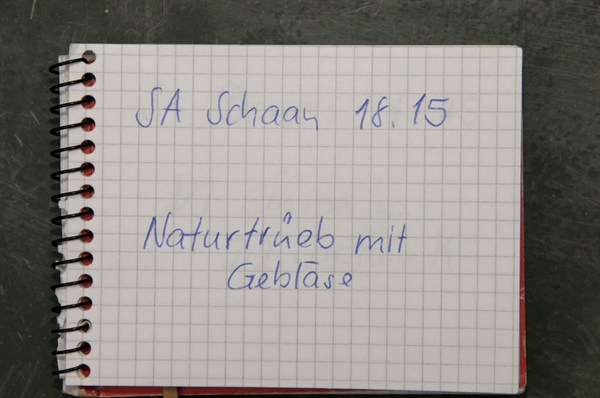 SA Schaan 18.15
Naturtrüeb mit
Gebläse